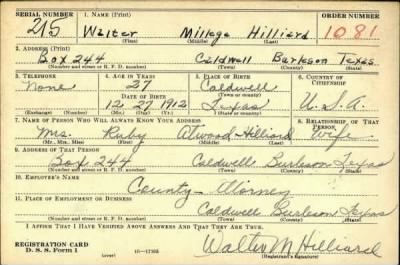 SERIAL NUMBER 1. NAME (Print) ORDER NUMBER
215 Walter Millege Hilliard 1081
(First) (Middle) (Last)
2. ADDRESS (Print)
Box 244 Caldwell Burleson Texas
(Number and street or R. F. D. number) (Town) (County) (State)
3. TELEPHONE 4. AGE IN YEARS 5. PLACE OF BIRTH 6. COUNTRY OF CITIZENSHIP
None 27 Caldwell
DATE OF BIRTH (Town or county)
12 27 1912 Texas U.S.A.
(Exchange) (Number) (Mo.) (Day) (Yr.) (State or country)
7. NAME OF PERSON WHO WILL ALWAYS KNOW YOUR ADDRESS 8. RELATIONSHIP OF THAT PERSON
Mrs. Ruby Atwood-Hilliard Wife
(Mr., Mrs., Miss) (First) (Middle) (Last)
9. ADDRESS OF THAT PERSON
Box 244 Caldwell Burleson Texas
(Number and street or R. F. D. number) (Town) (County) (State)
10. EMPLOYER'S NAME
County- Attorney
11. PLACE OF EMPLOYMENT OR BUSINESS
Caldwell Burleson Texas
(Number and street or R. F. D. number) (Town) (County) (State)
I AFFIRM THAT I HAVE VERIFIED ABOVE ANSWERS AND THAT THEY ARE TRUE.
REGISTRATION CARD
D. S. S. Form 1 (over) Walter M Hilliard
(Registrant's signature)